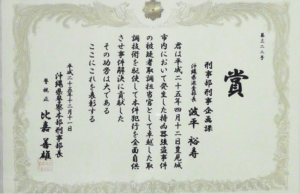 第三二八号
賞
刑事部刑事企画課
沖縄県巡査部長 波平裕寿
君は平成二十五年四月十二日豊見城
市内において発生した拳銃器強盗事件
の被疑者取調担当官として卓越した取
調技術を駆使して本件犯行を全面自供
させ事件解決に貢献した
その功労は大である
ここにこれを表彰する
平成二十五年十二月十一日
沖縄県警察本部刑事部長
警視正 比嘉善雄